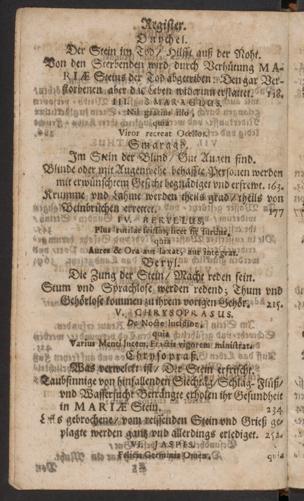 Register.
Onychel.
Der Stein im Tod / Hülff auß der Noht.
Von den Sterbenden wird durch Verhütung MA-
RIÆ Steins der Tod abgetriben: Den gar Ver-
storbenen aber das Leben widerumb erstattet. 138.
III. SMARAGDUS.
Nil gratius illo,
quia
Viror recreat Ocellos.
Smaragd.
Im Stein der Blind / Gut Augen find.
Blinde oder mit Augenwehe behaffte Personen werden
mit erwünschtem Gesicht begnädiget und erfrewt. 163.
Krumme und Lahme werden theils grad / theils von
Beinbrüchen errettet. 177
IV. BERYLLUS.
Plus rutilat sectus, licet sit surdus,
quia
Aures & Ora aut laxat, aut integrat.
Beryll.
Die Zung der Stein / Macht reden fein.
Stum und Sprachlose werden redend; Thum und
Gehörlose kommen zu ihrem vorigen Gehör. 215.
V. CHRYSOPRASUS.
De Nocte lucidior,
quia
Varius Menti lucem, Etatis vigorem ministrat.
Chrysopraß.
Was verwelckt ist / Der Stein erfrischt.
Taubsinnige von hinfallenden Siechtag / Schlag- Flüß /
und Wassersucht Betrangte erholen ihr Gesundheit
in MARIÆ Stein. 234
gebrochene / vom reissenden Stein und Grieß ge-
plagte werden gantz und allerdings erlediget. 252.
VI. JASPIS.
Felicis Germinis Omen,
quia